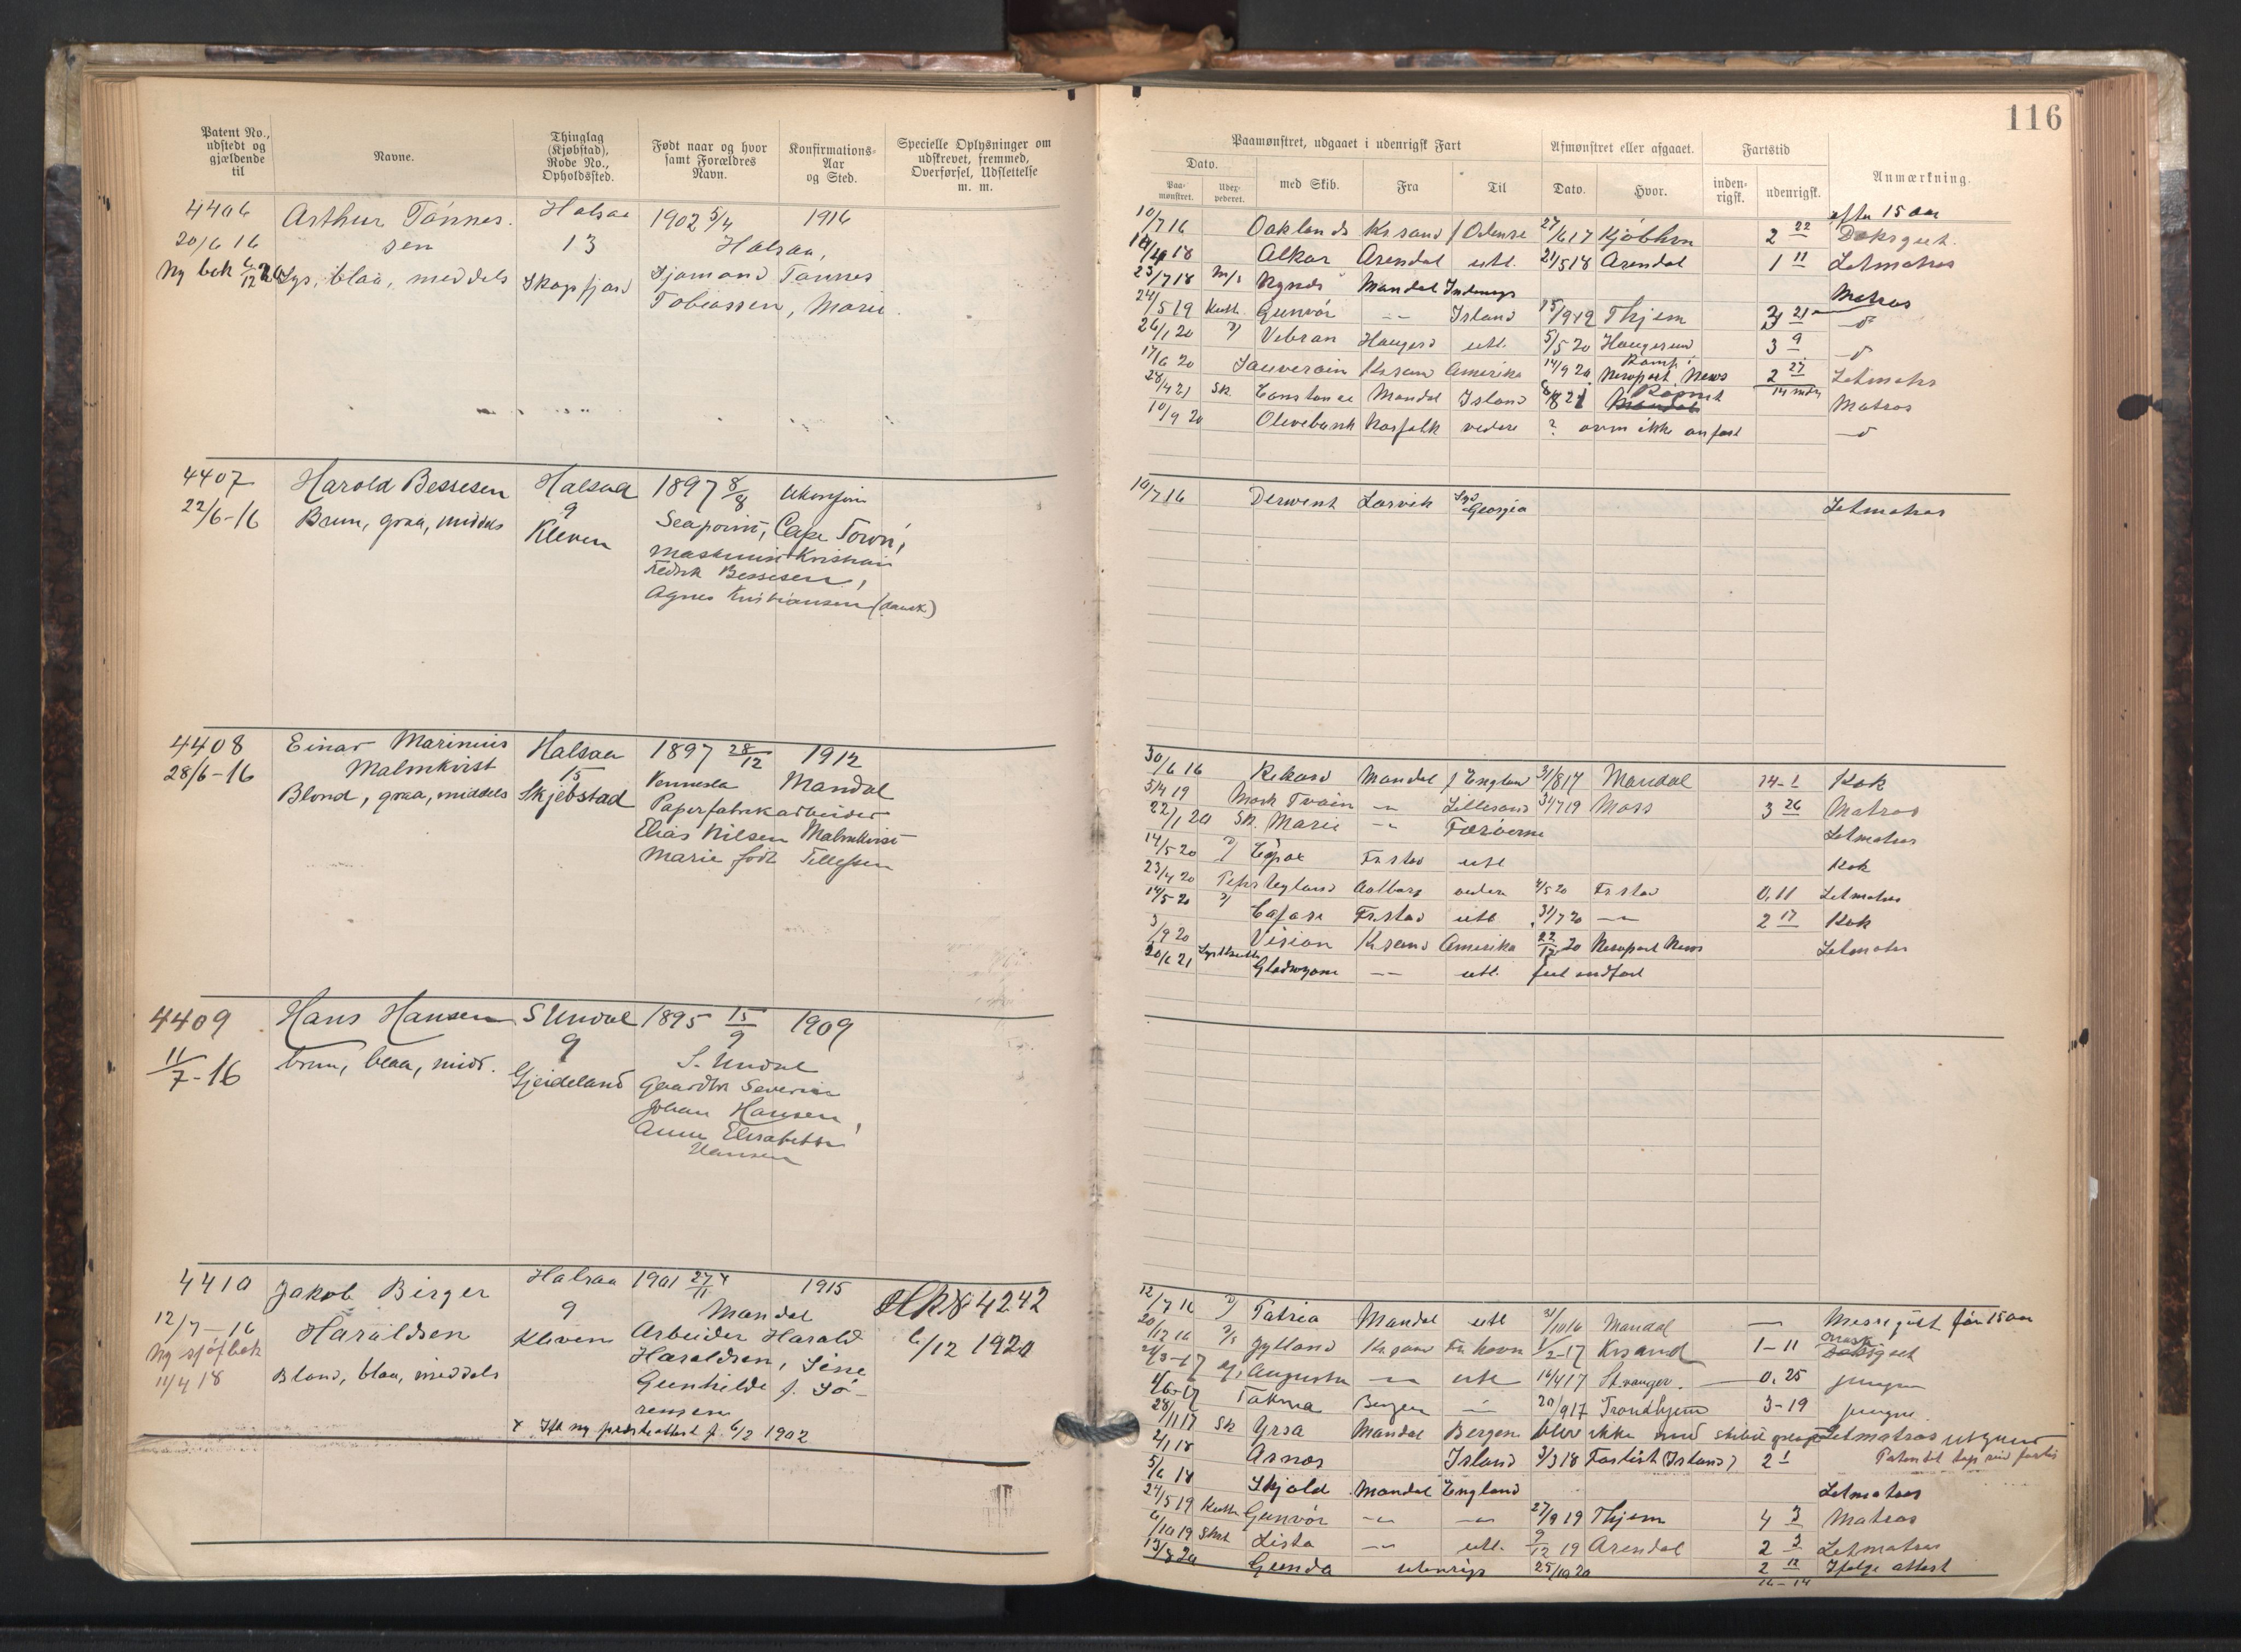 116
Patent No., udstedt og gjældende til
Navne.
Thinglag (Kjøbstad), Rode No., Opholdssted.
Født naar og hvor samt Forældres Navn.
Konfirmations-Aar og Sted.
Specielle Oplysninger om udskrevet, fremmed, Overførsel, Udslettelse m. m.
Paamønstret, udgaaet i udenrigsk Fart
Afmønstret eller afgaaet.
Fartstid
Anmærkning.
Dato.
Paa-mønstret.
Udex-pederet.
med Skib.
Fra
Til
Dato.
Hvor.
inden-rigsk.
udenrigsk.
4406 Arthur Tönnes. Halsaa 1902 5/4 1916
20/6 16 sen 13 Halsaa,
Ny bok Lys, blaa, meddels Skogsfjord Sjømand Tønnes
Tobiassen, Marie.
4407 Harold Bessesen Halsaa 1897 8/8 Ukonfirm
22/6-16 Brun, graa, middels 9 Seapoint, Cape Town,
Kleven maskinist Kristian
Fedrik Bessesen,
Agnes Kristiansen (dansk)
4408 Einar Marinius Halsaa 1897 28/12 1912
28/6-16 Malmkvist 15 Vennesla Mandal
Blond, graa, middels Skjebstad Papirfabrikarbeider
Elias Nilsen Malmkvist
Marie født Tellefsen
4409 Hans Hansen S Undal 1895 15/9 1909
11/7-16 brun, blaa, midd. 9 S. Undal
Gjeideland Gaardbr Severin
Johan Hansen,
Anne Elisabeth
Hansen
4410 Jakob Birger Halsaa 1901 27/11 1915 4242
12/7-16 Haraldsen 9 Mandal 6/12 1920
Ny sjøfbok Kleven Arbeider Harald
11/4 18 Blond, blaa, middels Haraldsen, Sine
Gunhilde f. Sö-
rensen
x Iflt ny presteattest f. 6/2 1902
efter 15 aar
10/7 16 Oaklands Krsand f Odense 27/6 17 Kjøbhvn 2 22 Dæksgut.
Alkor Arendal utl. 21/5 18 Arendal 1 11 Letmatros
23/7 18 m/s Mandal Indenrigs Matros
24/5 19 Kutt. Gunvör -"- Island 15/9 19 Thjem 3 21 -"-
26/1 20 Vebran Haugesd utl. 5/5 20 Haugesund 3 9 -"-
17/6 20 Sauverain Krsand Amerika 14/9 20 Newport News 2 27 Letmatros
28/4 21 Sk. Constanse Mandal Island Matros
10/9 20 Olivebank Norfolk videre ? -"-
10/7 16 Derwent Larvik Syd Georgia Letmatros
30/6 16 Rekord Mandal f England 31/8 17 Mandal 14-1 Kok
5/4 19 Mark Twain -"- Lillesand 31/7 19 Moss 3 26 Matros
22/1 20 Sk. Marie -"- Færöerne Letmatros
14/5-20 Fr.stad utl Kok
23/4 20 Aalborg videre 4/5 20 Fr.stad 0,11 Letmatros
14/5-20 Fr.stad utl. 31/7 20 -"- 2 17 Kok
3/9 20 Vision Krsand Amerika 22/12 20 Newport News Letmatros
20/6 21 -"- utl.
12/7 16 Patria Mandal utl 31/10 16 Mandal — Messegut før 15 aar
20/12 16 Jylland Krsand Fr.havn 1/2-17 Krsand 1-11
Augusta -"- utl 16/4 17 Stvanger. 0,25 jungm
Bergen -"- 20/9 17 Trondhjem 3-19 jungm.
28/11 17 Sk Yrsa Mandal Bergen blev ikke med skibet Letmatros
2/1 18 Arnos Island 3/3 18 2 1
5/6 18 Skjold Mandal England Letmatros
24/5 19 Kutt Gunvör -"- -"- 27/9 19 Thjem 4 3 Matros
6/10 19 Skt Lista -"- utl. 9/12 19 Arendal 2 3 Letmatros
13/8 20 Gunda utenrigs 25/10 20 2 12 Ifølge attest